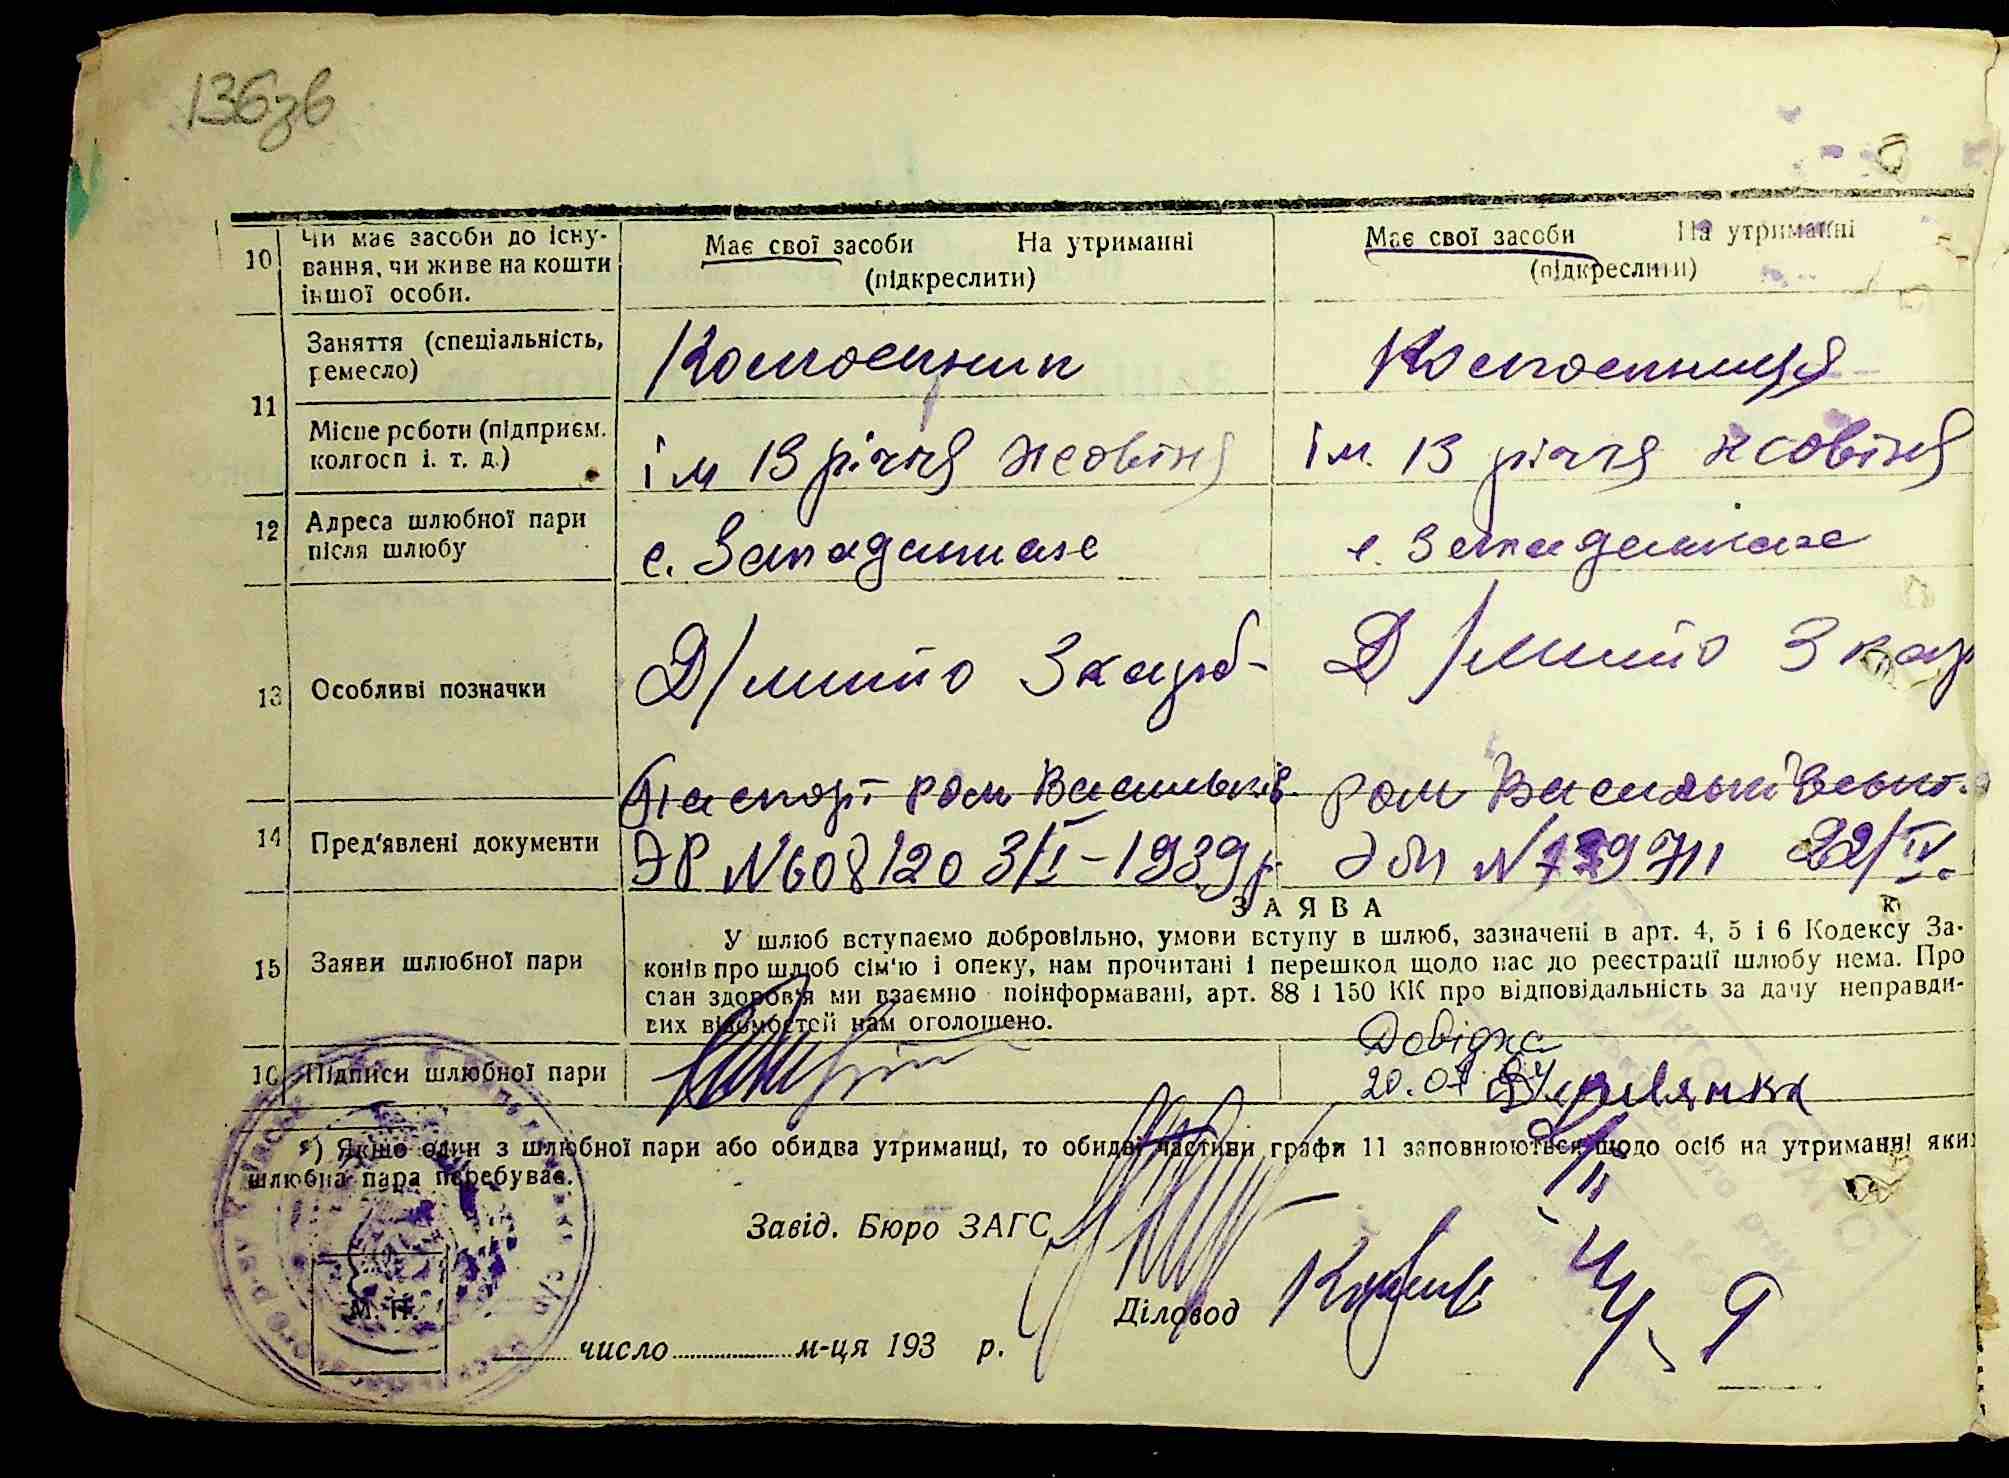 136зв
10 Чи має засоби до існу-
вання, чи живе на кошти
іншої особи.
Має свої засоби На утриманні
(підкреслити)
Має свої засоби На утриманні
(підкреслити)
11 Заняття (спеціальність,
ремесло)
Колгоспник
Колгоспниця
Місце роботи (підприєм.
колгосп і. т. д.)
ім 13 річчя жовтня
ім. 13 річчя жовтня
12 Адреса шлюбної пари
після шлюбу
с.
с.
13 Особливі позначки
Д/мито 3 карб-
Д/мито 3 кар
14 Пред'явлені документи
Паспорт ром Васильків.
ЭР №608120 3/II-1939р
ром Васильківсько.
22/IV.
15 Заяви шлюбної пари
ЗАЯВА
У шлюб вступаємо добровільно, умови вступу в шлюб, зазначені в арт. 4, 5 і 6 Кодексу За-
конів про шлюб сім'ю і опеку, нам прочитані і перешкод щодо нас до реєстрації шлюбу нема. Про
стан здоров'я ми взаємно поінформавані, арт. 88 і 150 КК про відповідальність за дачу неправди-
вих відомостей нам оголошено.
16 Підписи шлюбної пари
Довідка
*) Якщо один з шлюбної пари або обидва утриманці, то обидві частини графи 11 заповнюються щодо осіб на утриманні яких
шлюбна пара перебуває.
Завід. Бюро ЗАГС
М. П.
Діловод
число м-ця 193 р.